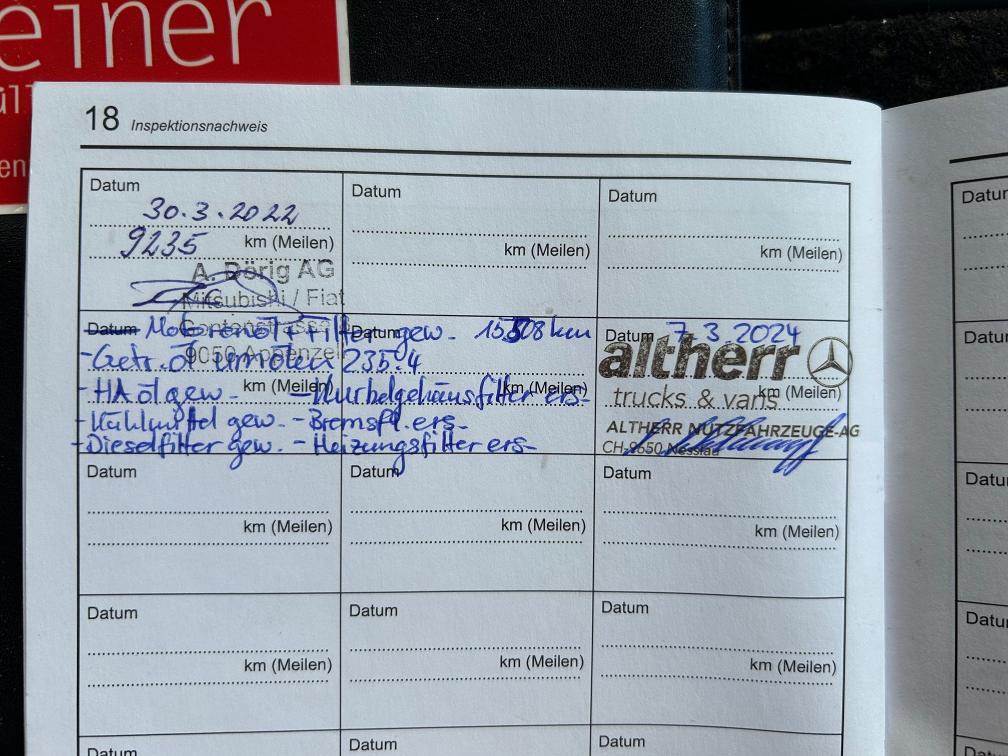 einer
18 Inspektionsnachweis
Datum
30.3.2022
9235 km (Meilen)
A. Dörig AG
Mitsubishi / Fiat
9050 Appenzell
Datum
km (Meilen)
Datum
km (Meilen)
Datum Motorenöl + Filter gew. 15508 km
- Getr. Öl 235.4
- HA öl gew. - Kurbelgehäusfilter ers-
- Kühlmittel gew. - Bremsfl. ers-
- Dieselfilter gew. - Heizungsfilter ers-
km (Meilen)
Datum
km (Meilen)
Datum 7.3.2024
altherr
km (Meilen)
trucks & vans
ALTHERR NUTZFAHRZEUGE AG
CH-9650 Nesslau
Datum
km (Meilen)
Datum
km (Meilen)
Datum
km (Meilen)
Datum
km (Meilen)
Datum
km (Meilen)
Datum
km (Meilen)
Datum
Datum
Datum